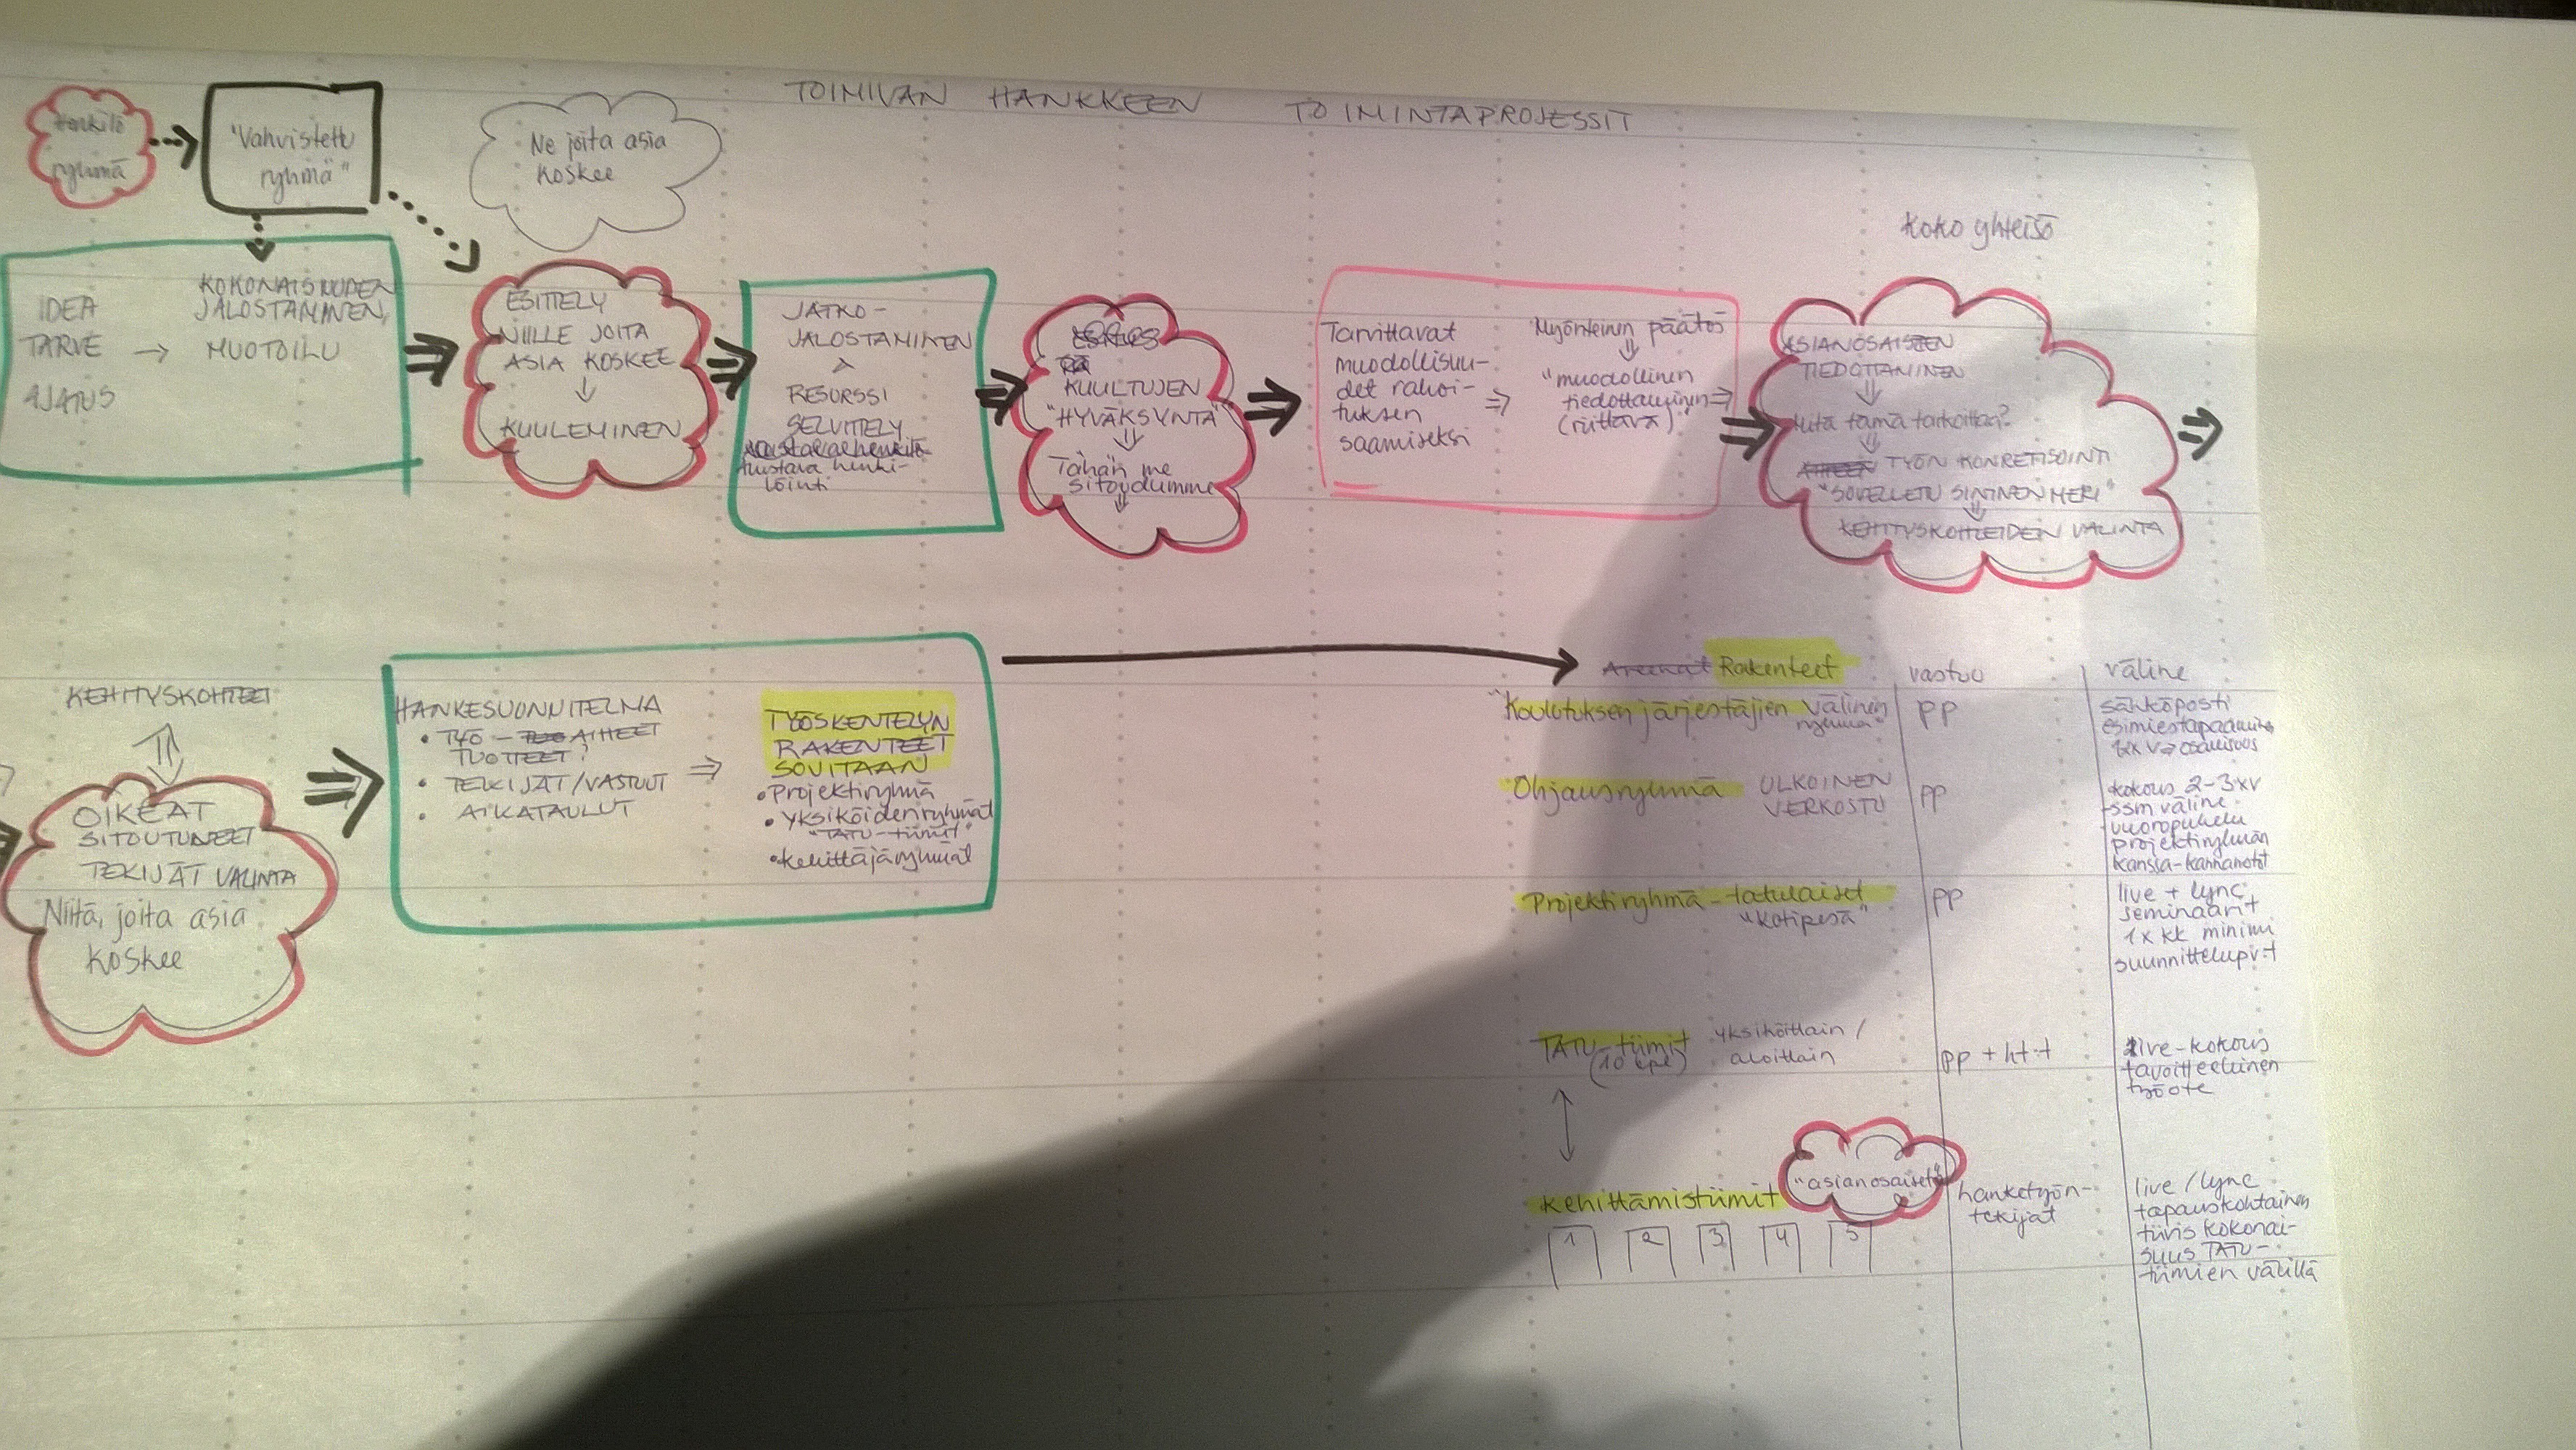 TOIMIVAN HANKKEEN TOIMINTAPROJESSIT
Henkilö
ryhmä
"Vahvistettu
ryhmä"
Ne joita asia
koskee
Koko yhteisö
IDEA
TARVE →
AJATUS
KOKONAISUUDEN
JALOSTAMINEN,
MUOTOILU
ESITTELY
NIILLE JOITA
ASIA KOSKEE
↓
KUULEMINEN
JATKO-
JALOSTAMINEN
RESURSSI
SELVITTELY
alustava henki-
löinti
KUULTUJEN
"HYVÄKSYNTÄ"
⇓
Tähän me
sitoudumme
⇓
Tarvittavat
muodollisuu-
det rahoi-
tuksen
saamiseksi
⇒
Myönteinen päätös
⇓
"muodollinen
tiedottaminen ⇒
(riittävä)"
ASIANOSAISTEN
TIEDOTTAMINEN
⇓
Mitä tämä tarkoittaa?
⇓
TYÖN KONRETISOINTI
"SOVELLETU SININEN MERI"
⇓
KEHITYSKOHTEIDEN VALINTA
KEHITYSKOHTEET
OIKEAT
SITOUTUNEET
TEKIJÄT VALINTA
Niitä, joita asia
koskee
HANKESUUNNITELMA
• TYÖ - AIHEET
TUOTTEET?
• TEKIJÄT/VASTUUT
• AIKATAULUT
⇒
TYÖSKENTELYN
RAKENTEET
SOVITAAN
• Projektiryhmä
• yksiköidenryhmät
"TATU-tiimit"
• Kehittäjäryhmät
Rakenteet vastuu väline
"Koulutuksen järjestäjien välinen
ryhmä"
pp
sähköposti
esimiestapaaminen
Ohjausryhmä ULKOINEN
VERKOSTO
pp
kokous 2-3xv
ssm väline
vuoropuhelu
projektiryhmän
kanssa-kannanotot
Projektiryhmä - tatulaiset
"Kotipesä"
pp
live + lync,
seminaarit
1x kk minimi
suunnittelupv:t
TATU-tiimit yksiköittäin /
(10 kpl) aloittain
pp + ht:t
live-kokous
tavoitteellinen
työote
Kehittämistiimit
"asianosaiset"
1 2 3 4 5
hanketyön-
tekijät
live / lync
tapauskohtainen
tiivis kokonai-
suus TATU-
tiimien välillä